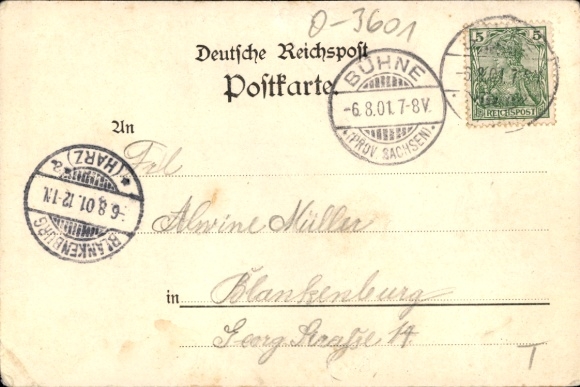 O-3601
Deutsche Reichspost
Postkarte.
5 5
REICHSPOST
BÜHNE
-6.8.01. 7-8V.
(PROV. SACHSEN)
An
Frl.
BLANKENBURG
-6.8.01. 12-1N.
* (HARZ) a
Alwine Müller
in Blankenburg
Georg Straße 14
T